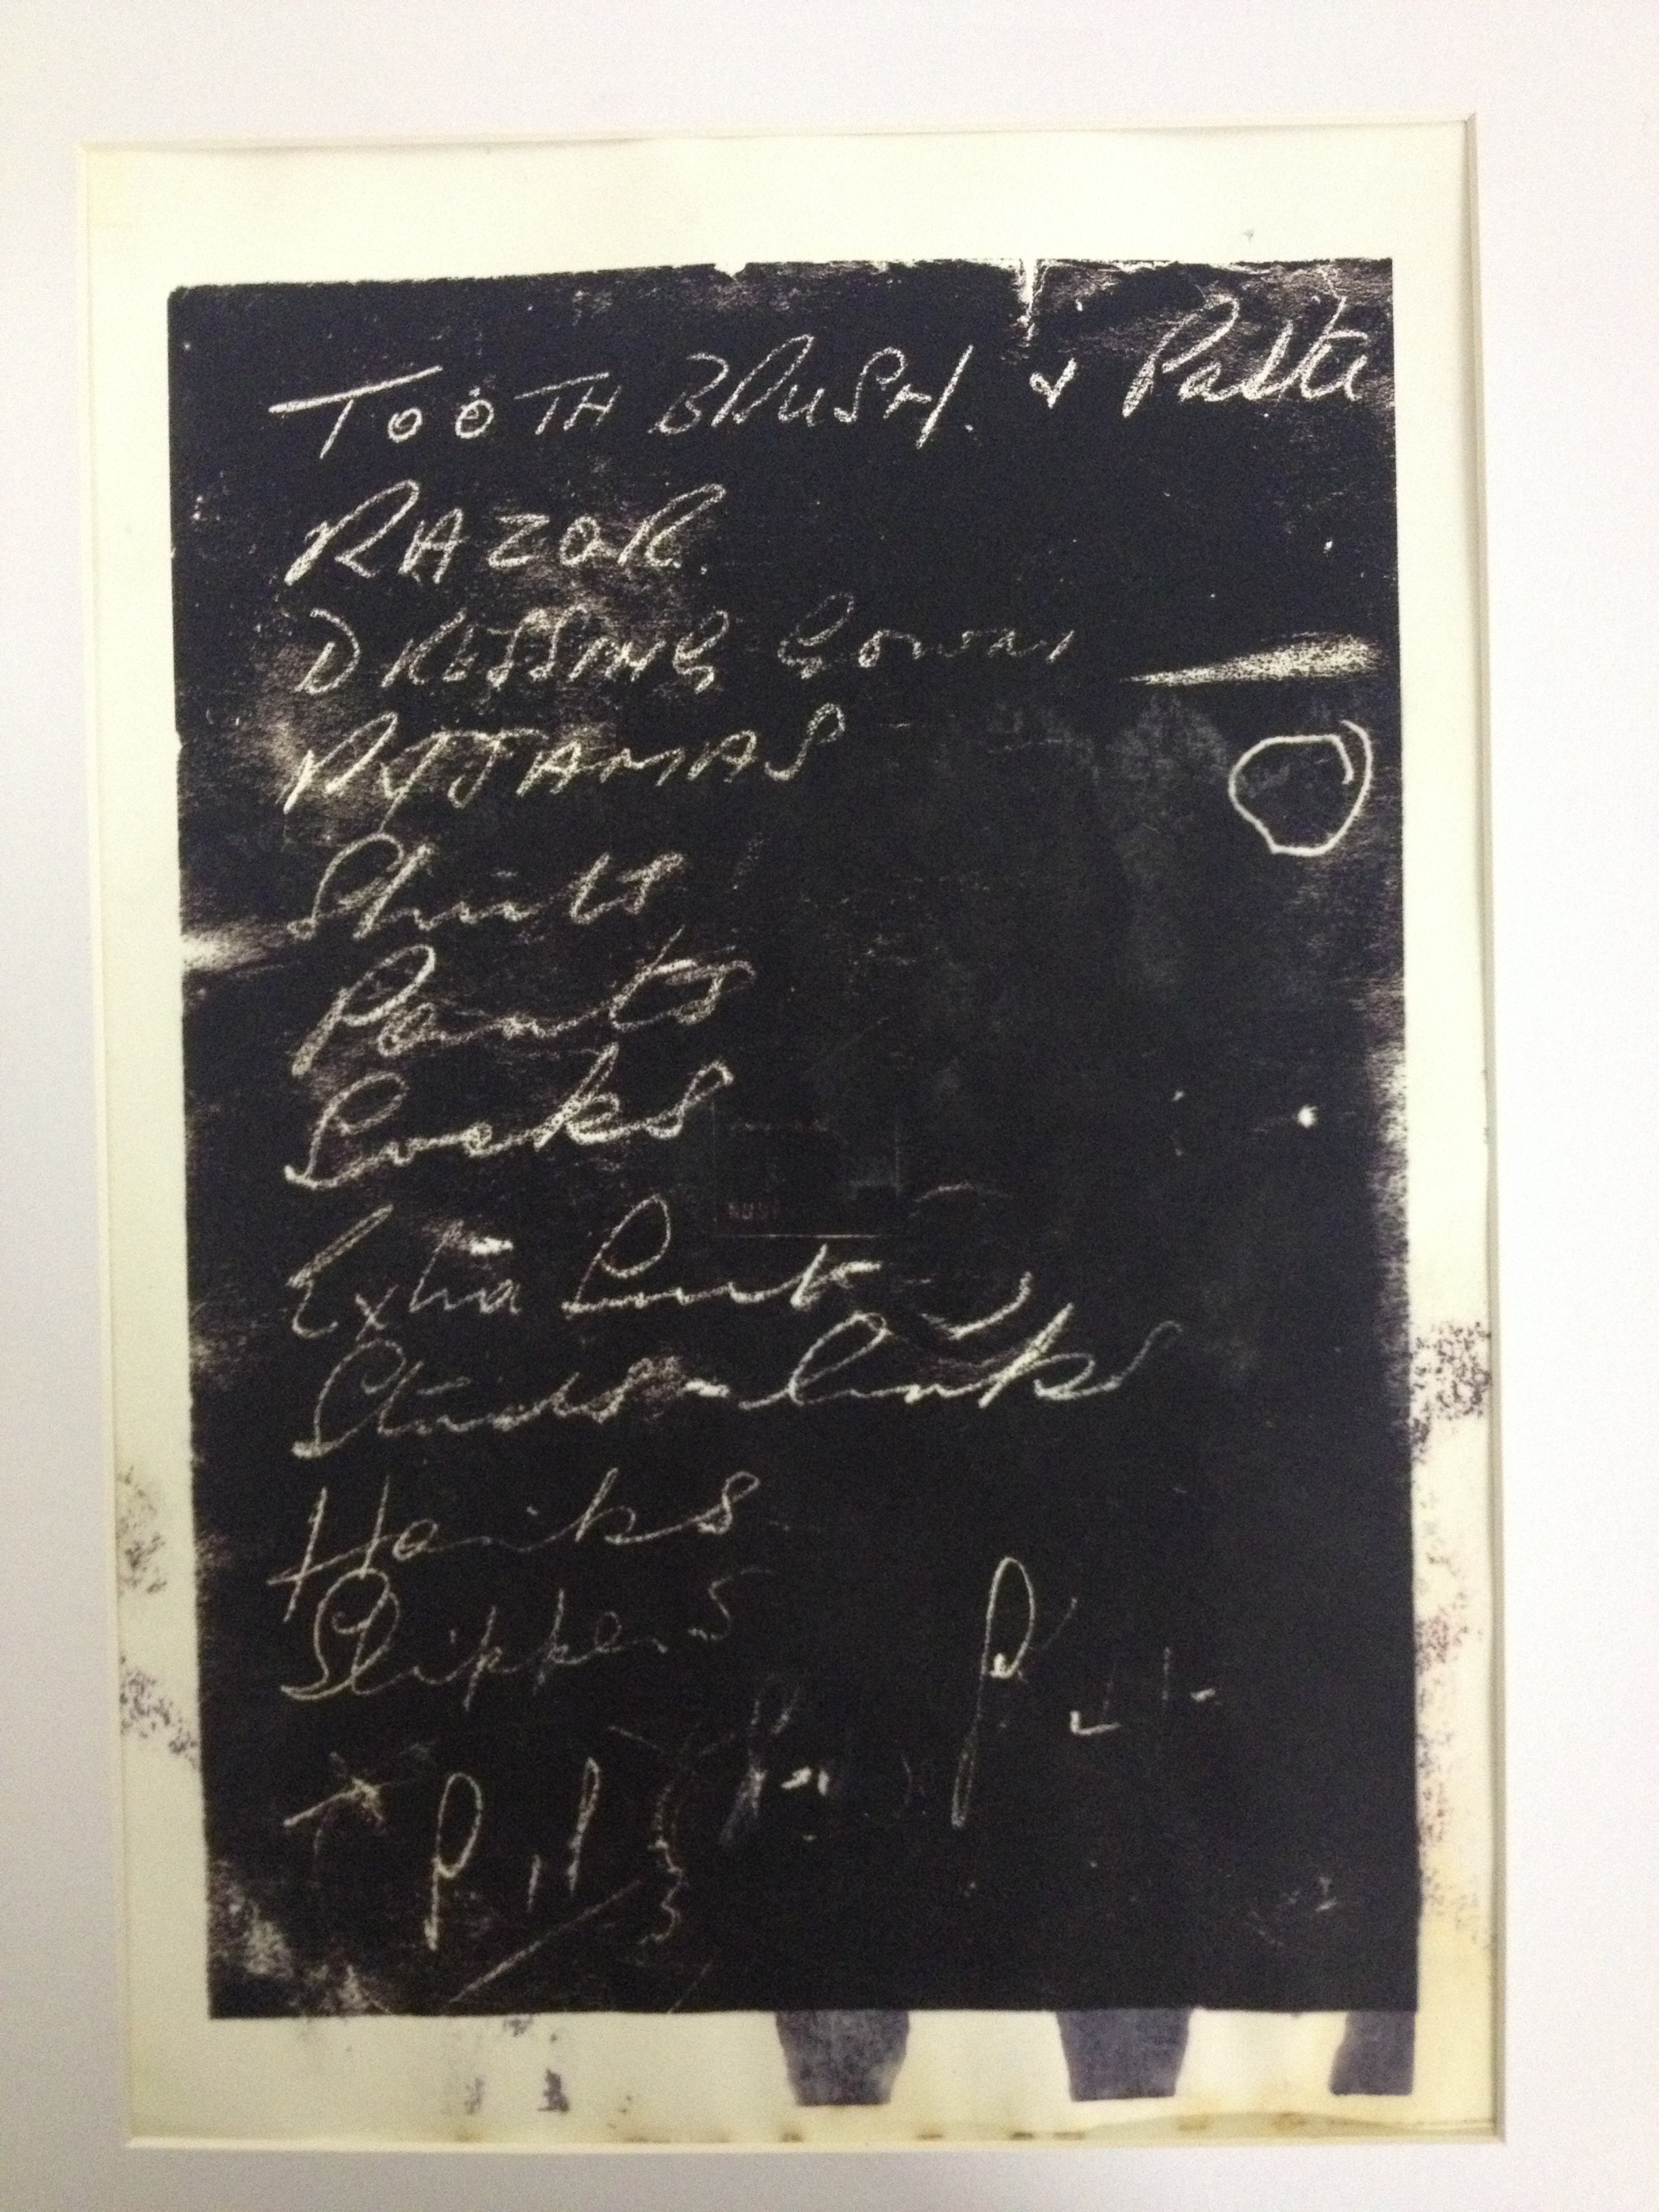 TOOTH BRUSH. & Paste
RAZOR.
DRESSING Gown
PYJAMAS
Shirts
Pants
Socks
Extra Suit
Studs - links
Hanks
Slippers